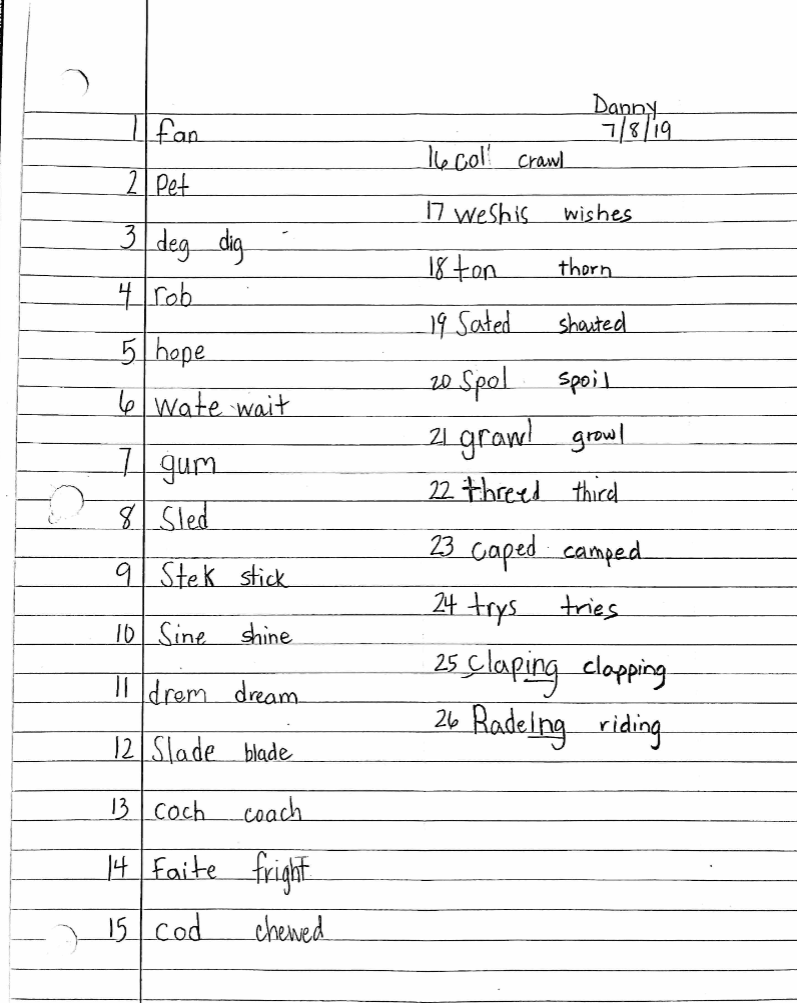 Danny
7/8/19
1 fan
2 Pet
3 deg dig
4 rob
5 hope
6 Wate wait
7 gum
8 Sled
9 Stek stick
10 Sine shine
11 drem dream
12 Slade blade
13 coch coach
14 Faite fright
15 cod chewed
16 col' crawl
17 weshis wishes
18 ton thorn
19 Sated shouted
20 Spol spoil
21 grawl growl
22 threed third
23 caped camped
24 trys tries
25 claping clapping
26 Radeing riding